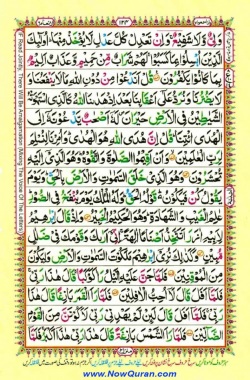 ١٢٣
وَلِيٌّ وَّلَا شَفِيْعٌ ۚ وَاِنْ تَعْدِلْ كُلَّ عَدْلٍ لَّا يُؤْخَذْ مِنْهَا ؕ اُولٰٓئِكَ
الَّذِيْنَ اُبْسِلُوْا بِمَا كَسَبُوْا ۚ لَهُمْ شَرَابٌ مِّنْ حَمِيْمٍ وَّعَذَابٌ اَلِيْمٌۢ
بِمَا كَانُوْا يَكْفُرُوْنَ ۝ قُلْ اَنَدْعُوْا مِنْ دُوْنِ اللّٰهِ مَا لَا يَنْفَعُنَا وَ
لَا يَضُرُّنَا وَنُرَدُّ عَلٰٓى اَعْقَابِنَا بَعْدَ اِذْ هَدٰىنَا اللّٰهُ كَالَّذِى اسْتَهْوَتْهُ
الشَّيٰطِيْنُ فِى الْاَرْضِ حَيْرَانَ ۪ لَهٗۤ اَصْحٰبٌ يَّدْعُوْنَهٗۤ اِلَى
الْهُدَى ائْتِنَا ؕ قُلْ اِنَّ هُدَى اللّٰهِ هُوَ الْهُدٰى ؕ وَاُمِرْنَا لِنُسْلِمَ
لِرَبِّ الْعٰلَمِيْنَ ۝ وَاَنْ اَقِيْمُوا الصَّلٰوةَ وَاتَّقُوْهُ ؕ وَهُوَ الَّذِىْۤ اِلَيْهِ
تُحْشَرُوْنَ ۝ وَهُوَ الَّذِىْ خَلَقَ السَّمٰوٰتِ وَالْاَرْضَ بِالْحَقِّ ؕ وَيَوْمَ
يَقُوْلُ كُنْ فَيَكُوْنُ ؕ قَوْلُهُ الْحَقُّ ؕ وَلَهُ الْمُلْكُ يَوْمَ يُنْفَخُ فِى الصُّوْرِ ؕ
عٰلِمُ الْغَيْبِ وَالشَّهَادَةِ ؕ وَهُوَ الْحَكِيْمُ الْخَبِيْرُ ۝ وَاِذْ قَالَ اِبْرٰهِيْمُ
لِاَبِيْهِ اٰزَرَ اَتَتَّخِذُ اَصْنَامًا اٰلِهَةً ۚ اِنِّىْۤ اَرٰىكَ وَقَوْمَكَ فِىْ ضَلٰلٍ
مُّبِيْنٍ ۝ وَكَذٰلِكَ نُرِىْۤ اِبْرٰهِيْمَ مَلَكُوْتَ السَّمٰوٰتِ وَالْاَرْضِ وَلِيَكُوْنَ
مِنَ الْمُوْقِنِيْنَ ۝ فَلَمَّا جَنَّ عَلَيْهِ الَّيْلُ رَاٰ كَوْكَبًا ۚ قَالَ هٰذَا رَبِّىْ ۚ
فَلَمَّاۤ اَفَلَ قَالَ لَاۤ اُحِبُّ الْاٰفِلِيْنَ ۝ فَلَمَّا رَاَ الْقَمَرَ بَازِغًا قَالَ هٰذَا
رَبِّىْ ۚ فَلَمَّاۤ اَفَلَ قَالَ لَئِنْ لَّمْ يَهْدِنِىْ رَبِّىْ لَاَكُوْنَنَّ مِنَ الْقَوْمِ
الضَّآلِّيْنَ ۝ فَلَمَّا رَاَ الشَّمْسَ بَازِغَةً قَالَ هٰذَا رَبِّىْ هٰذَاۤ اَكْبَرُ ۚ فَلَمَّاۤ
www.NowQuran.com